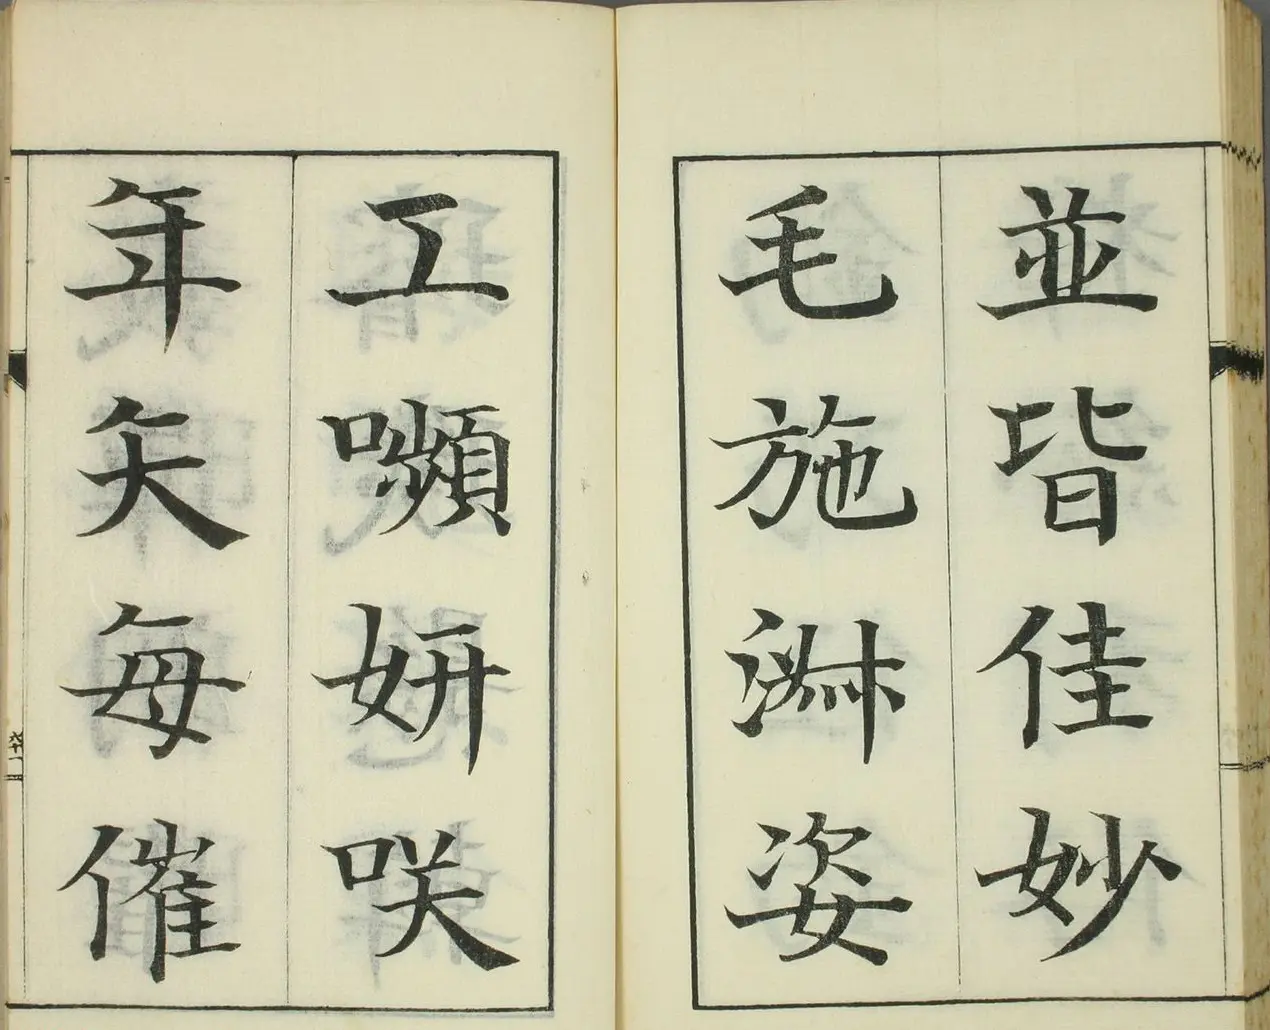 並皆佳妙
毛施淑姿
工嚬妍咲
年矢每催
六十一